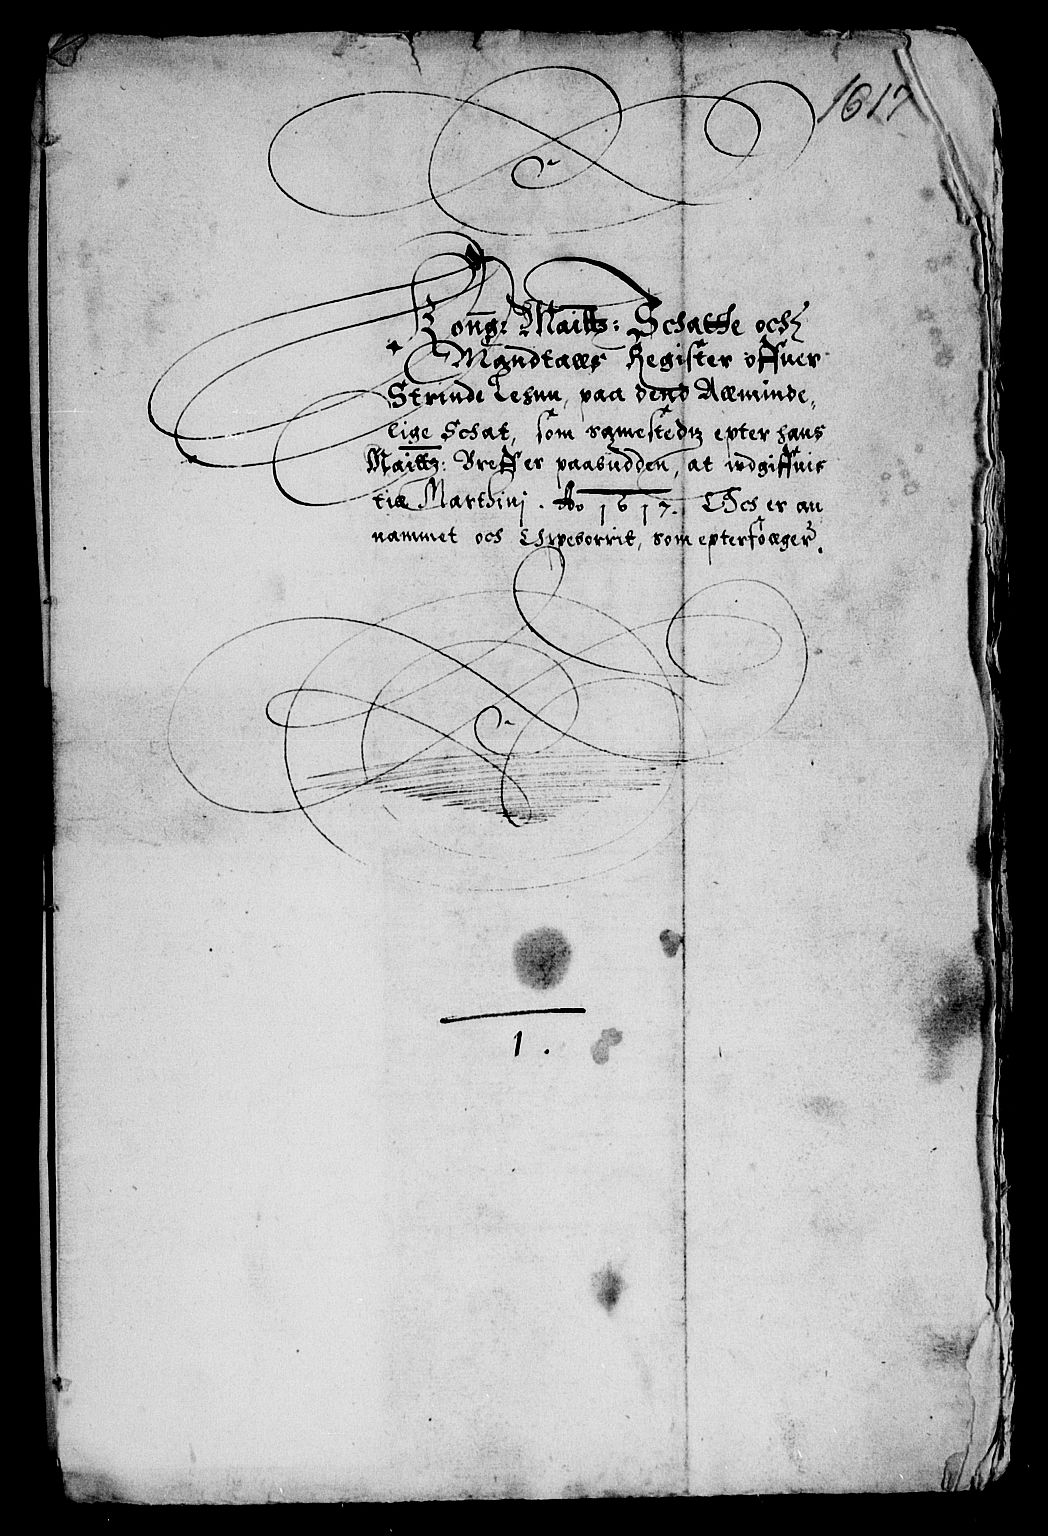 1617
Kong: Maitts: Schatte och
Mandtals Register offuer
Strinde Lehnn, paa dend Alminde,
lige Schat, som samestedtz epter hans
Maittz: Breff er paabudden, at udgiffuis
till Marthinj. Ao 1617. Och er an
nammet och Opeborrit, som epterfølger.
1.